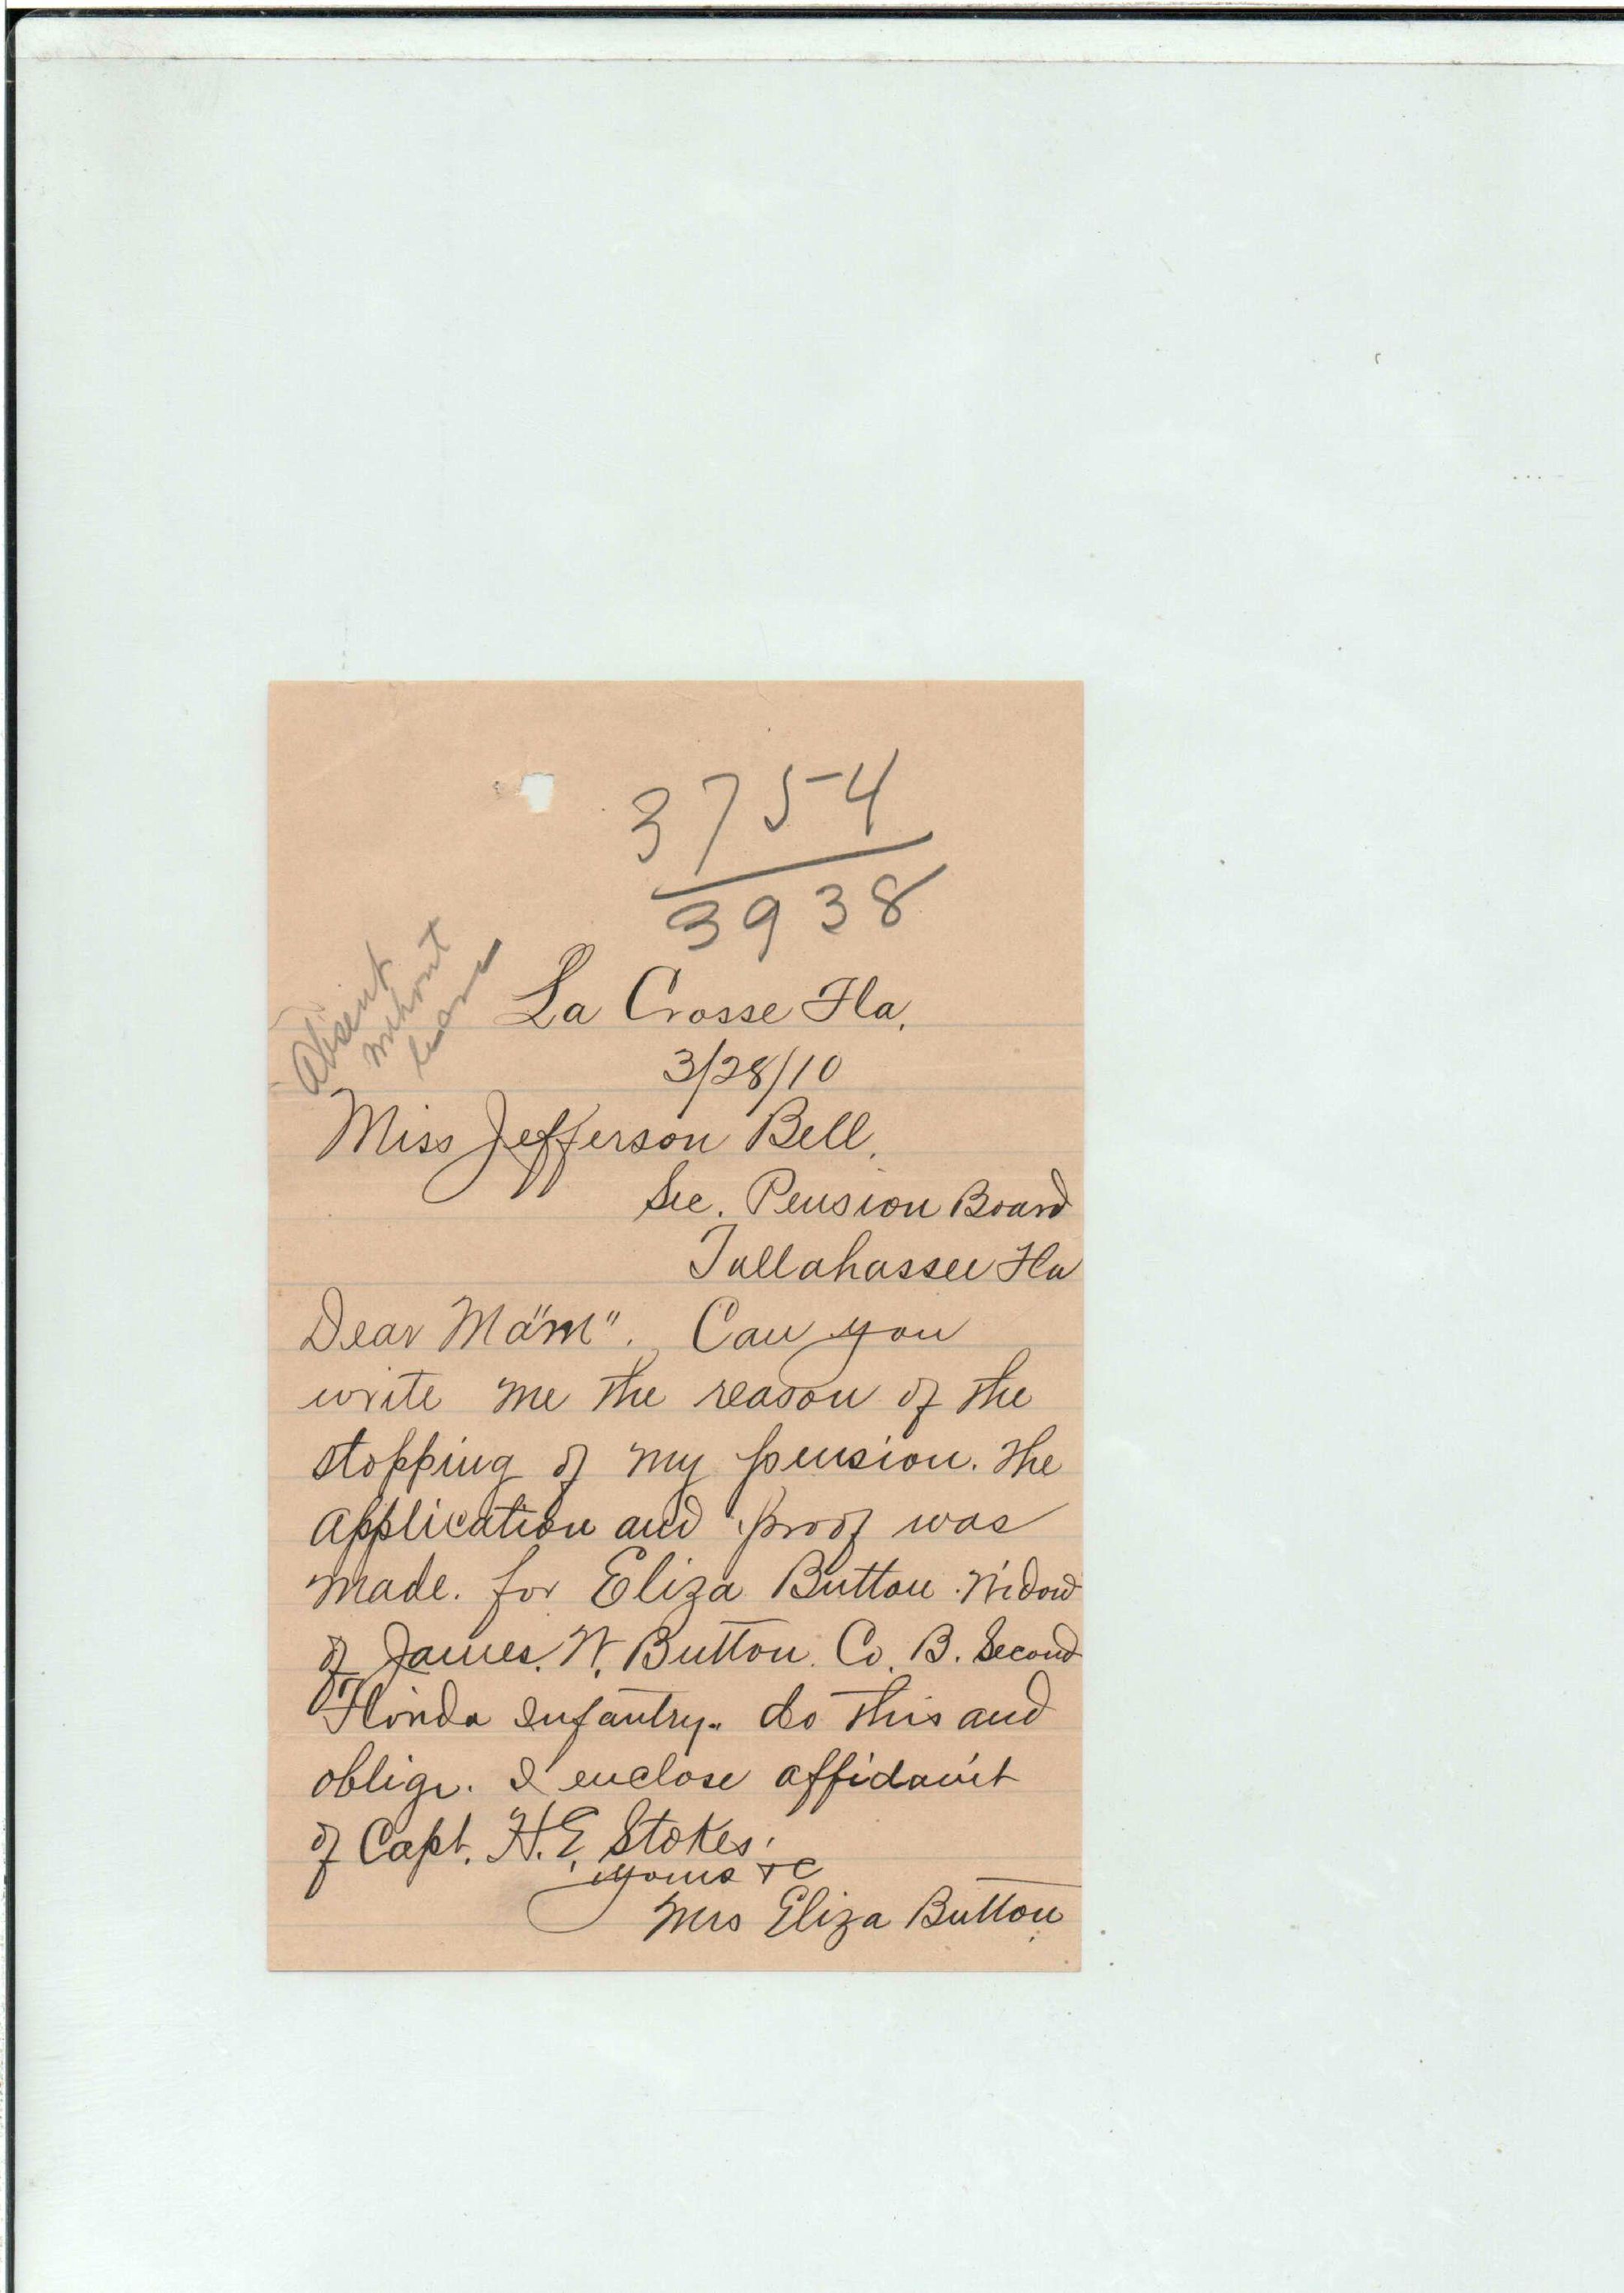 3754
3938
Absent
without
leave
La Crosse Fla.
3/28/10
Miss Jefferson Bell.
Sec. Pension Board
Tallahassee Fla
Dear Ma"m". Can you
write me the reason of the
stopping of my pension. The
application and proof was
made. for Eliza Button. Widow
of James. W. Button. Co. B. Second
Florida Infantry. do this and
oblige. I enclose affidavit
of Capt. H. E. Stokes.
yours &c
Mrs Eliza Button